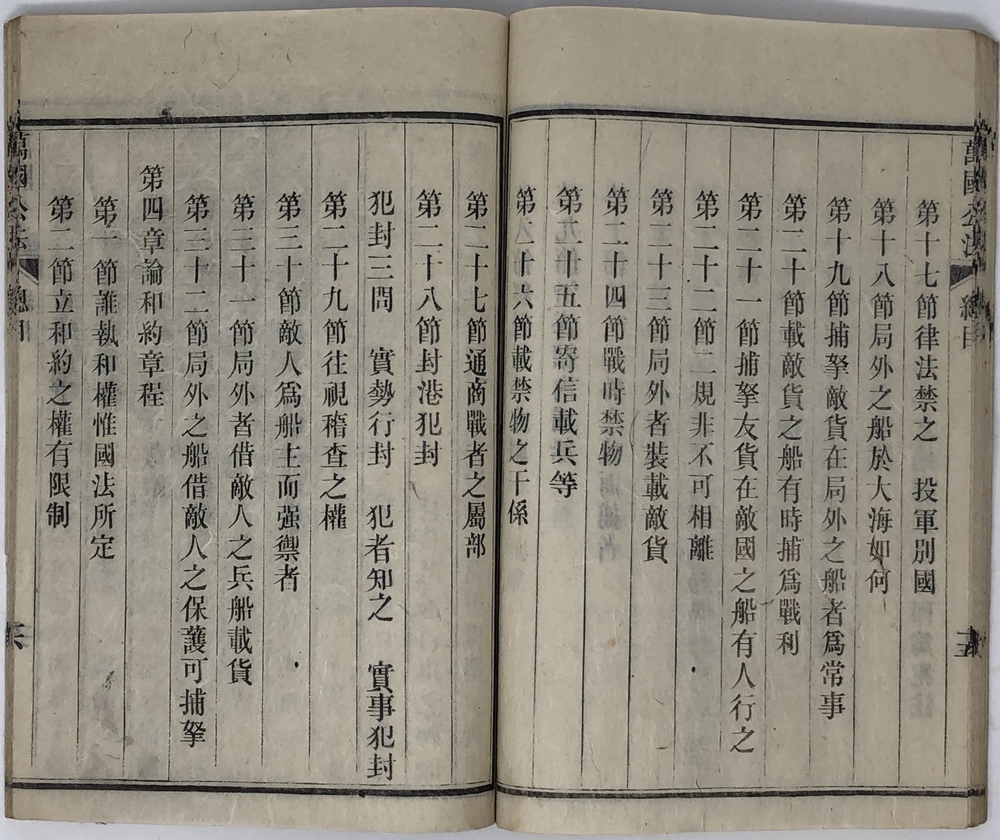 萬國公法 總目
第十七節律法禁之 投軍別國
第十八節局外之船於大海如何
第十九節捕拏敵貨在局外之船者爲常事
第二十節載敵貨之船有時捕爲戰利
第二十一節捕拏友貨在敵國之船有人行之
第二十二節二規非不可相離
第二十三節局外者裝載敵貨
第二十四節戰時禁物
第二十五節寄信載兵等
第二十六節載禁物之干係
第二十七節通商戰者之屬部
第二十八節封港犯封
犯封三問 實勢行封 犯者知之 實事犯封
第二十九節往視稽查之權
第三十節敵人爲船主而强禦者
第三十一節局外者借敵人之兵船載貨
第三十二節局外之船借敵人之保護可捕拏
第四章論和約章程
第一節誰執和權惟國法所定
第二節立和約之權有限制
萬國公法 總目